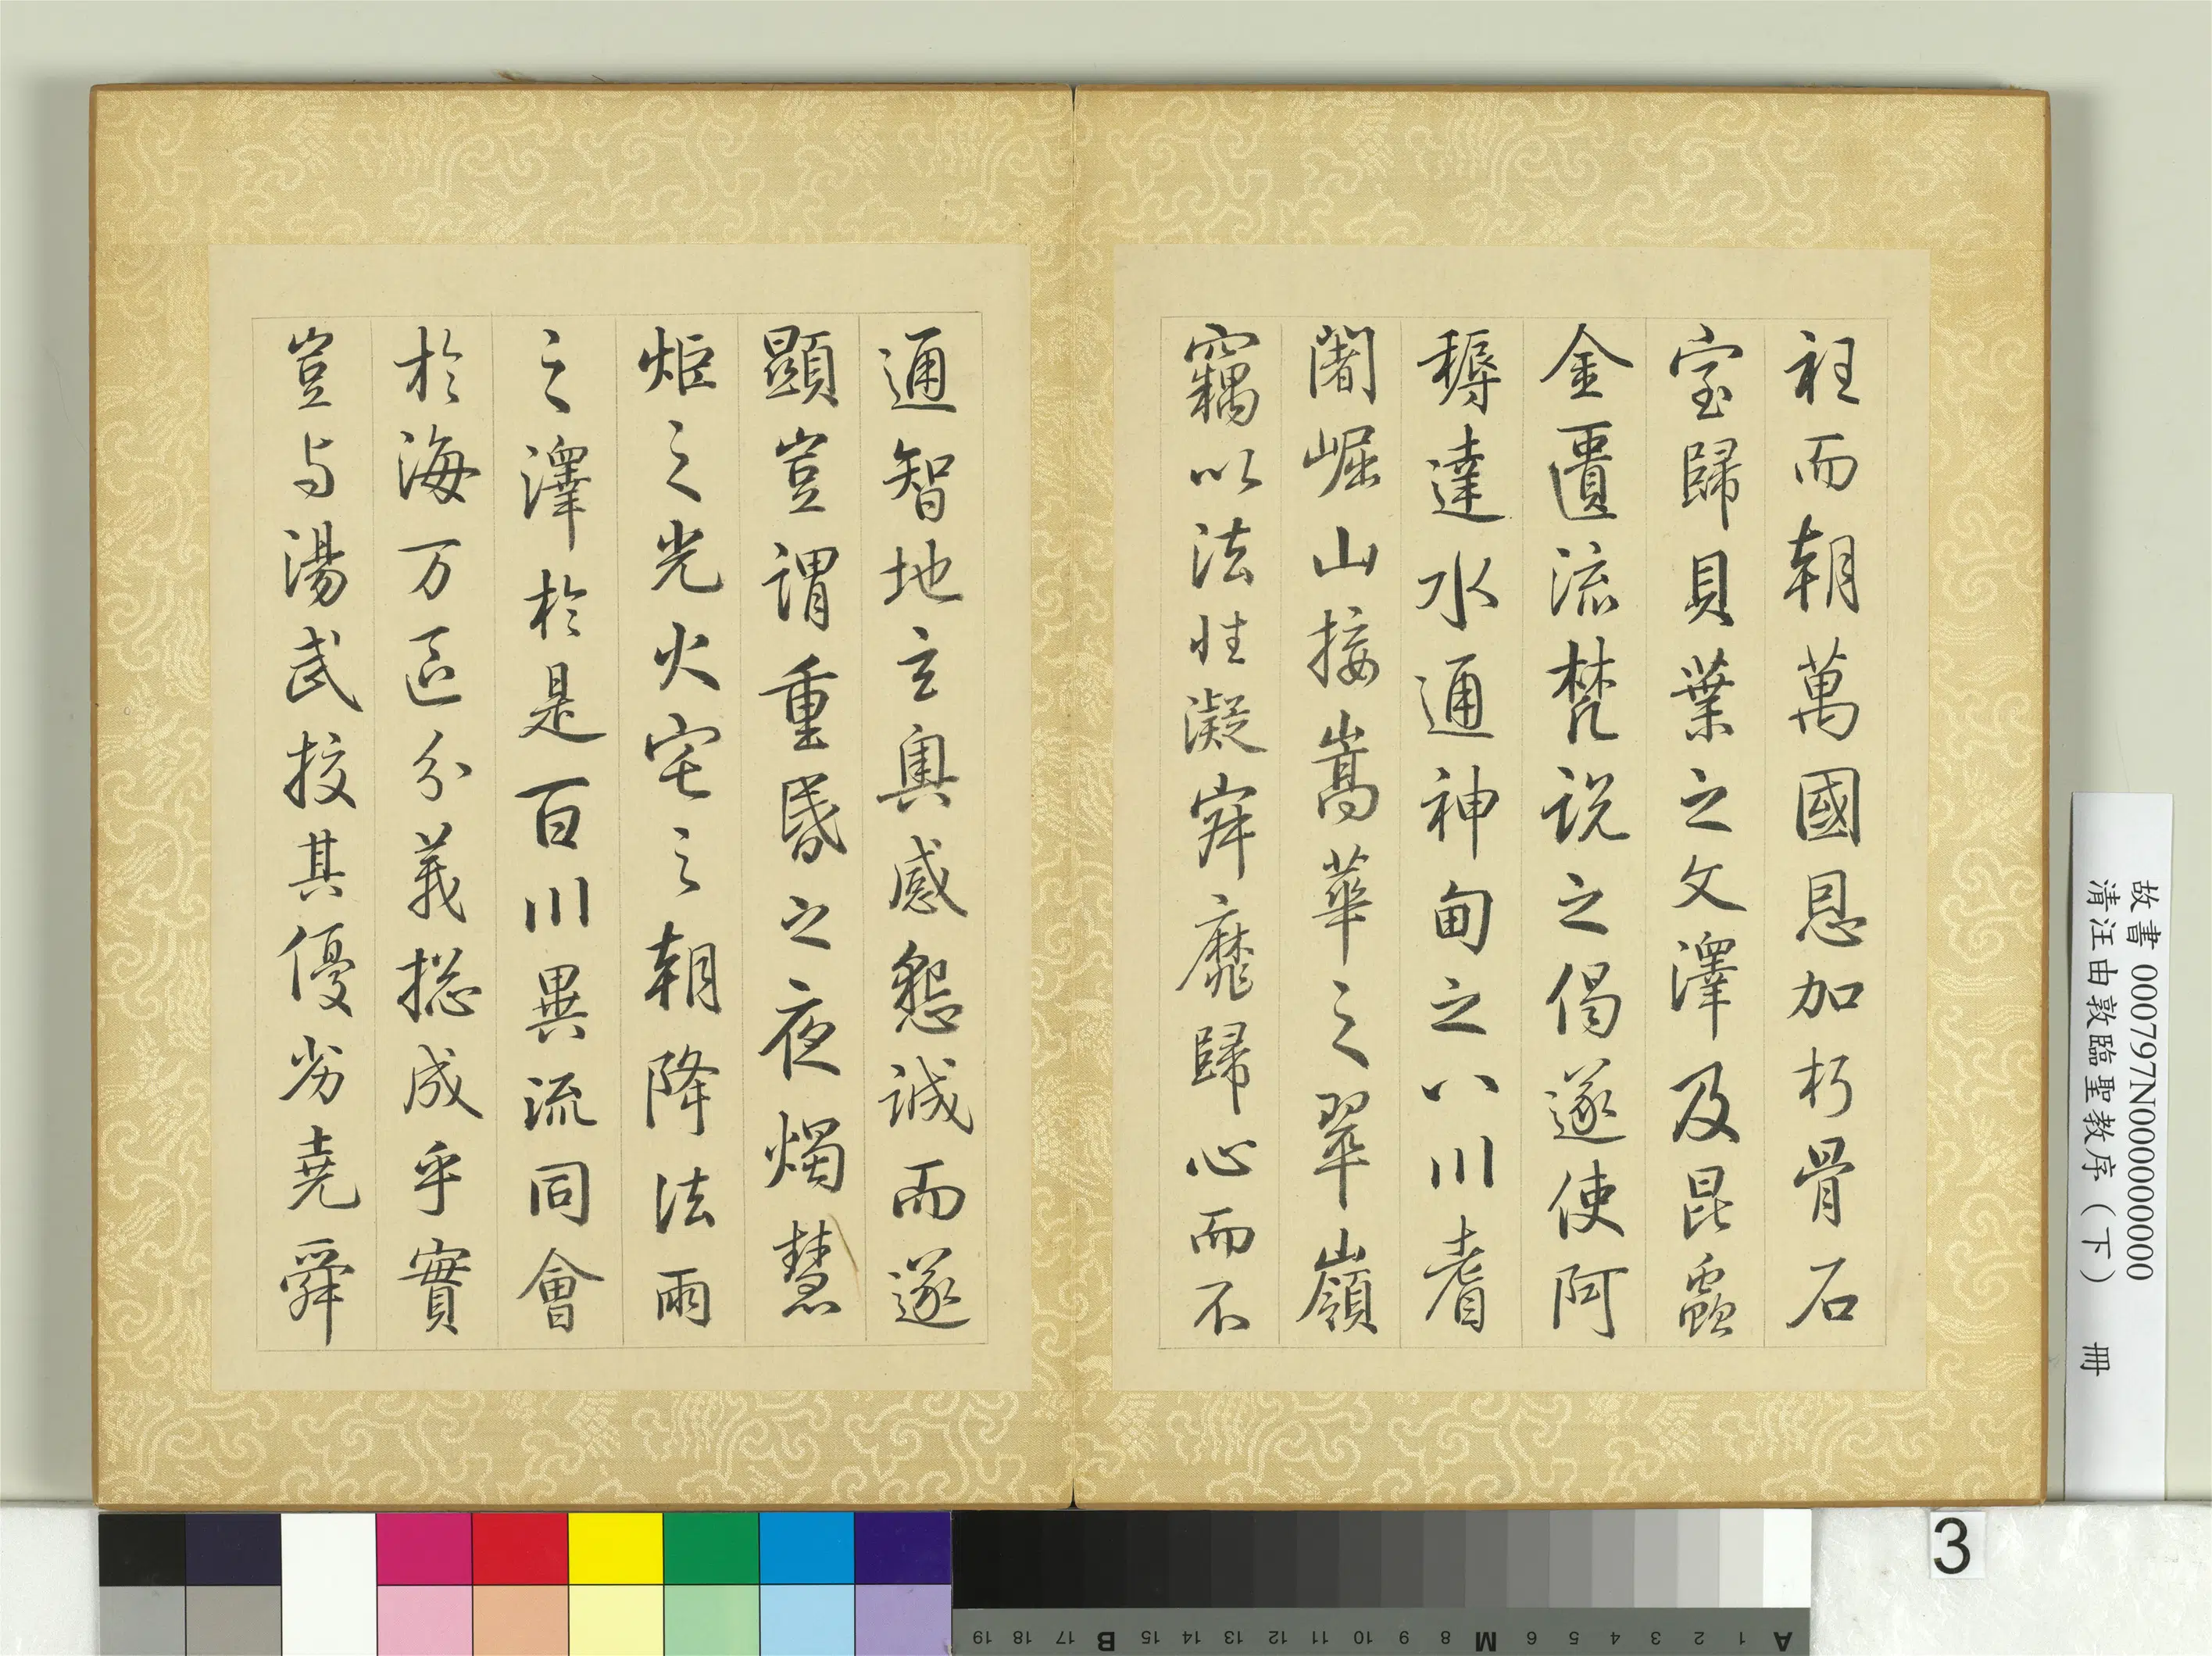 衽而朝萬國恩加朽骨石
室歸貝葉之文澤及昆蟲
金匱流梵说之偈遂使阿
耨達水通神甸之八川耆
闍崛山接嵩華之翠嶺
竊以法性凝寂靡歸心而不
通智地玄奧感懇誠而遂
顯豈謂重昏之夜燭慧
炬之光火宅之朝降法雨
之澤於是百川異流同會
於海万區分義揔成乎實
豈与湯武挍其優劣堯舜
故書 000797N000000000
清汪由敦臨聖教序（下） 冊
3
A 1 2 3 4 5 6 M 8 9 10 11 12 13 14 15 B 17 18 19